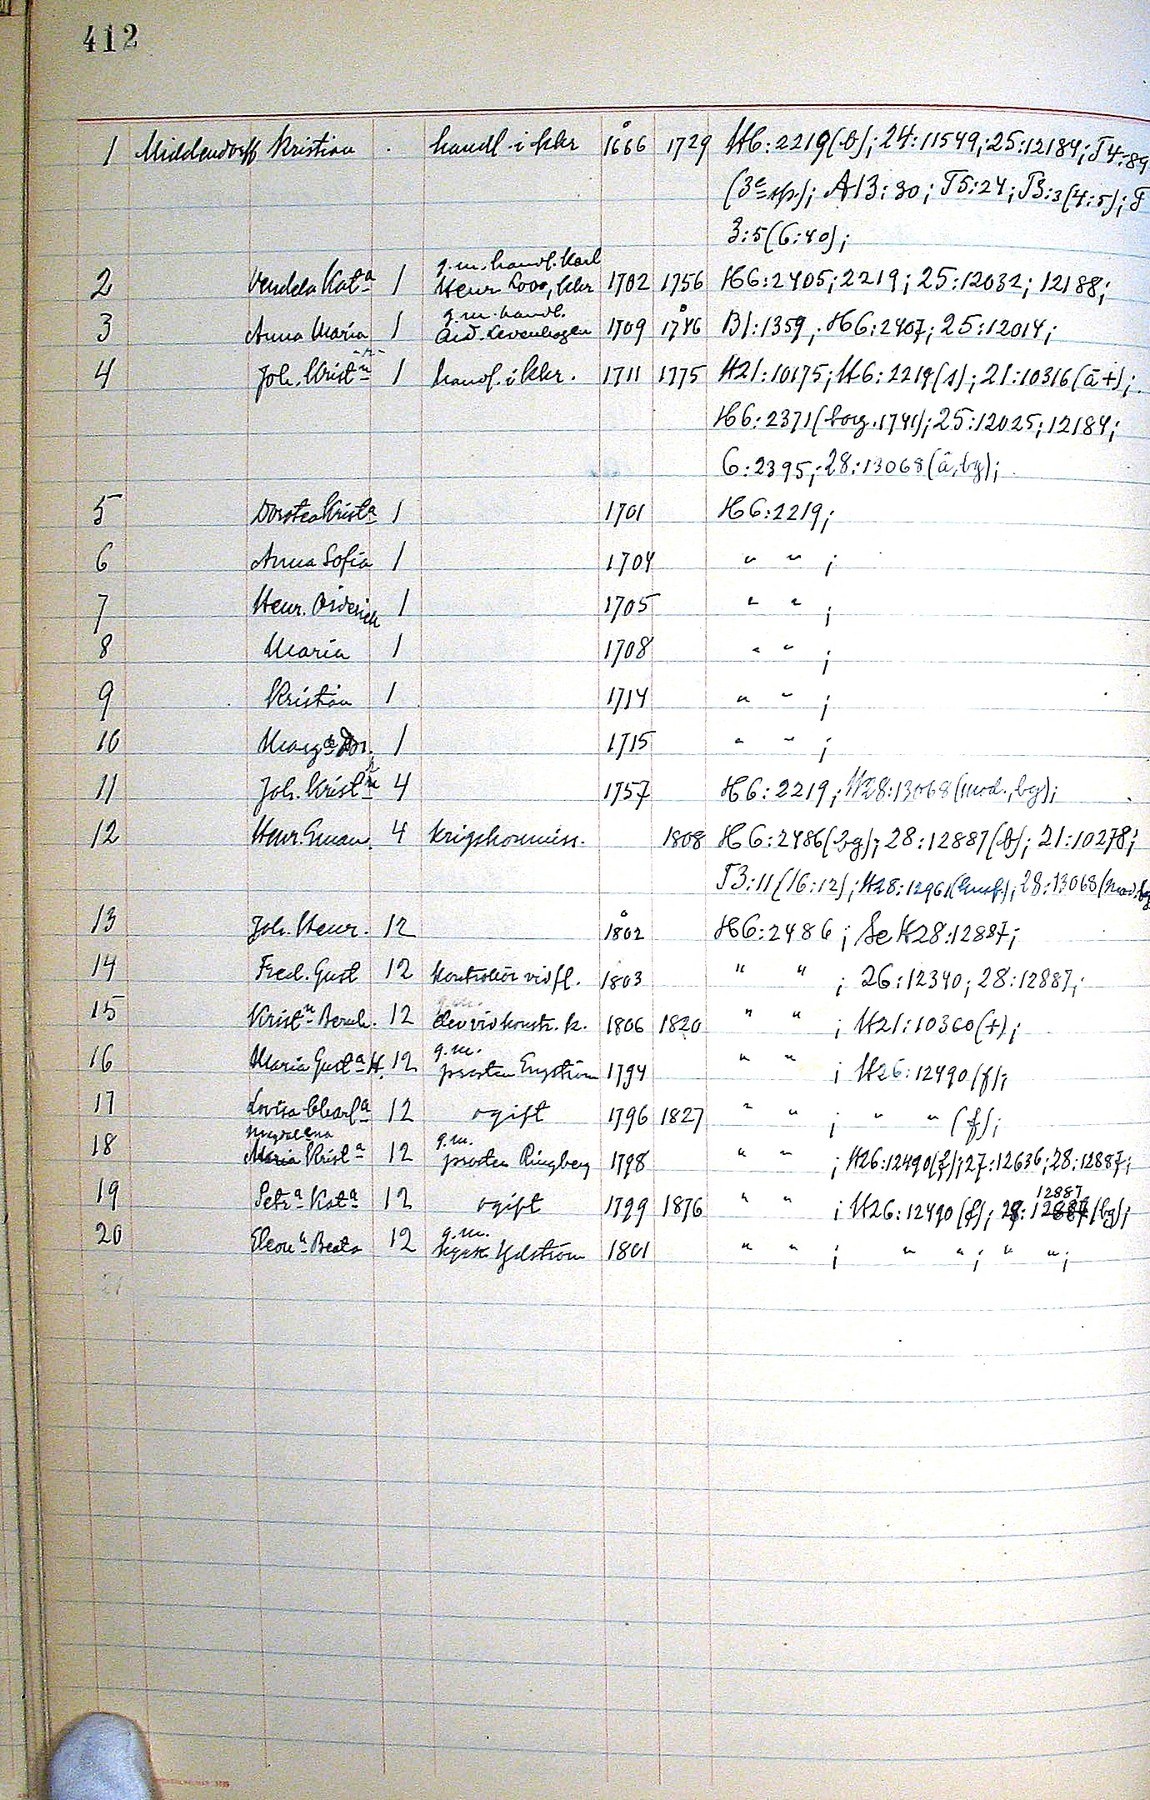 412
1 Middendorff Kristian . handl. i kkr 1666 1729 H6:2219(b); 24:11549; 25:12184; T4:89
(3e sp); A13:30; T5:24; T3:3(4:5); T
3:5(6:40);
2 Vendela Kata 1 g.m. handl. Karl Henr Loos, kkr 1702 1756 H6:2405; 2219; 25:12032; 12188;
3 Anna Maria 1 g.m. handl. Aid. Levenhagen 1709 1746 B1:1359; H6:2407; 25:12014;
4 Joh. Kristn 1 handl. i kkr. 1711 1775 H21:10175; H6:2219(s); 21:10316(å+);
H6:2371(borg. 1741); 25:12025; 12184;
6:2395; 28:13068(å, bg);
5 Dorotea Krista 1 1701 H6:2219;
6 Anna Sofia 1 1704 " " ;
7 Henr. Diderich 1 1705 " " ;
8 Maria 1 1708 " " ;
9 Kristian 1 1714 " " ;
10 Marga Dor. 1 1715 " " ;
11 Joh. Kristn 4 1757 H6:2219; H28:13068(mod., bg);
12 Henr. Eman. 4 Krigskommiss. 1808 H6:2486(bg); 28:12887(b); 21:10278;
T3:11(16:12); H28:12961(husf); 28:13068(mod. bg
13 Joh. Henr. 12 1802 H6:2486; Se H28:12887;
14 Fred. Gust 12 Kontrollör vid fl. 1803 " " ; 26:12340; 28:12887;
15 Kristn Bernh. 12 Elev vid konstr. k. 1806 1820 " " ; H21:10360(+);
16 Maria Gusta H. 12 g.m. prosten Engström 1794 " " ; H26:12490(f);
17 Lovisa Charla 12 ogift 1796 1827 " " ; " " (f);
18 Magdalena Krista 12 g.m. prosten Ringberg 1798 " " ; H26:12490(f); 27:12636; 28:12887;
19 Petra Kata 12 ogift 1799 1876 " " ; H26:12490(f); 28:12887(bg);
20 Eleona Beata 12 g.m. kyrk. Ydström 1801 " " ; " " ; " " ;
21